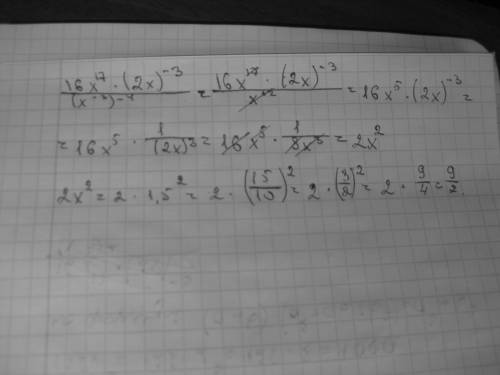 16x¹⁷ · (2x)⁻³ / (x⁻³)⁻⁴ = 16x¹⁷ · (2x)⁻³ / x¹² = 16x⁵ · (2x)⁻³ =
= 16x⁵ · 1/(2x)³ = 16x⁵ · 1/8x³ = 2x²
2x² = 2 · 1,5² = 2 · (15/10)² = 2 · (3/2)² = 2 · 9/4 = 9/2.